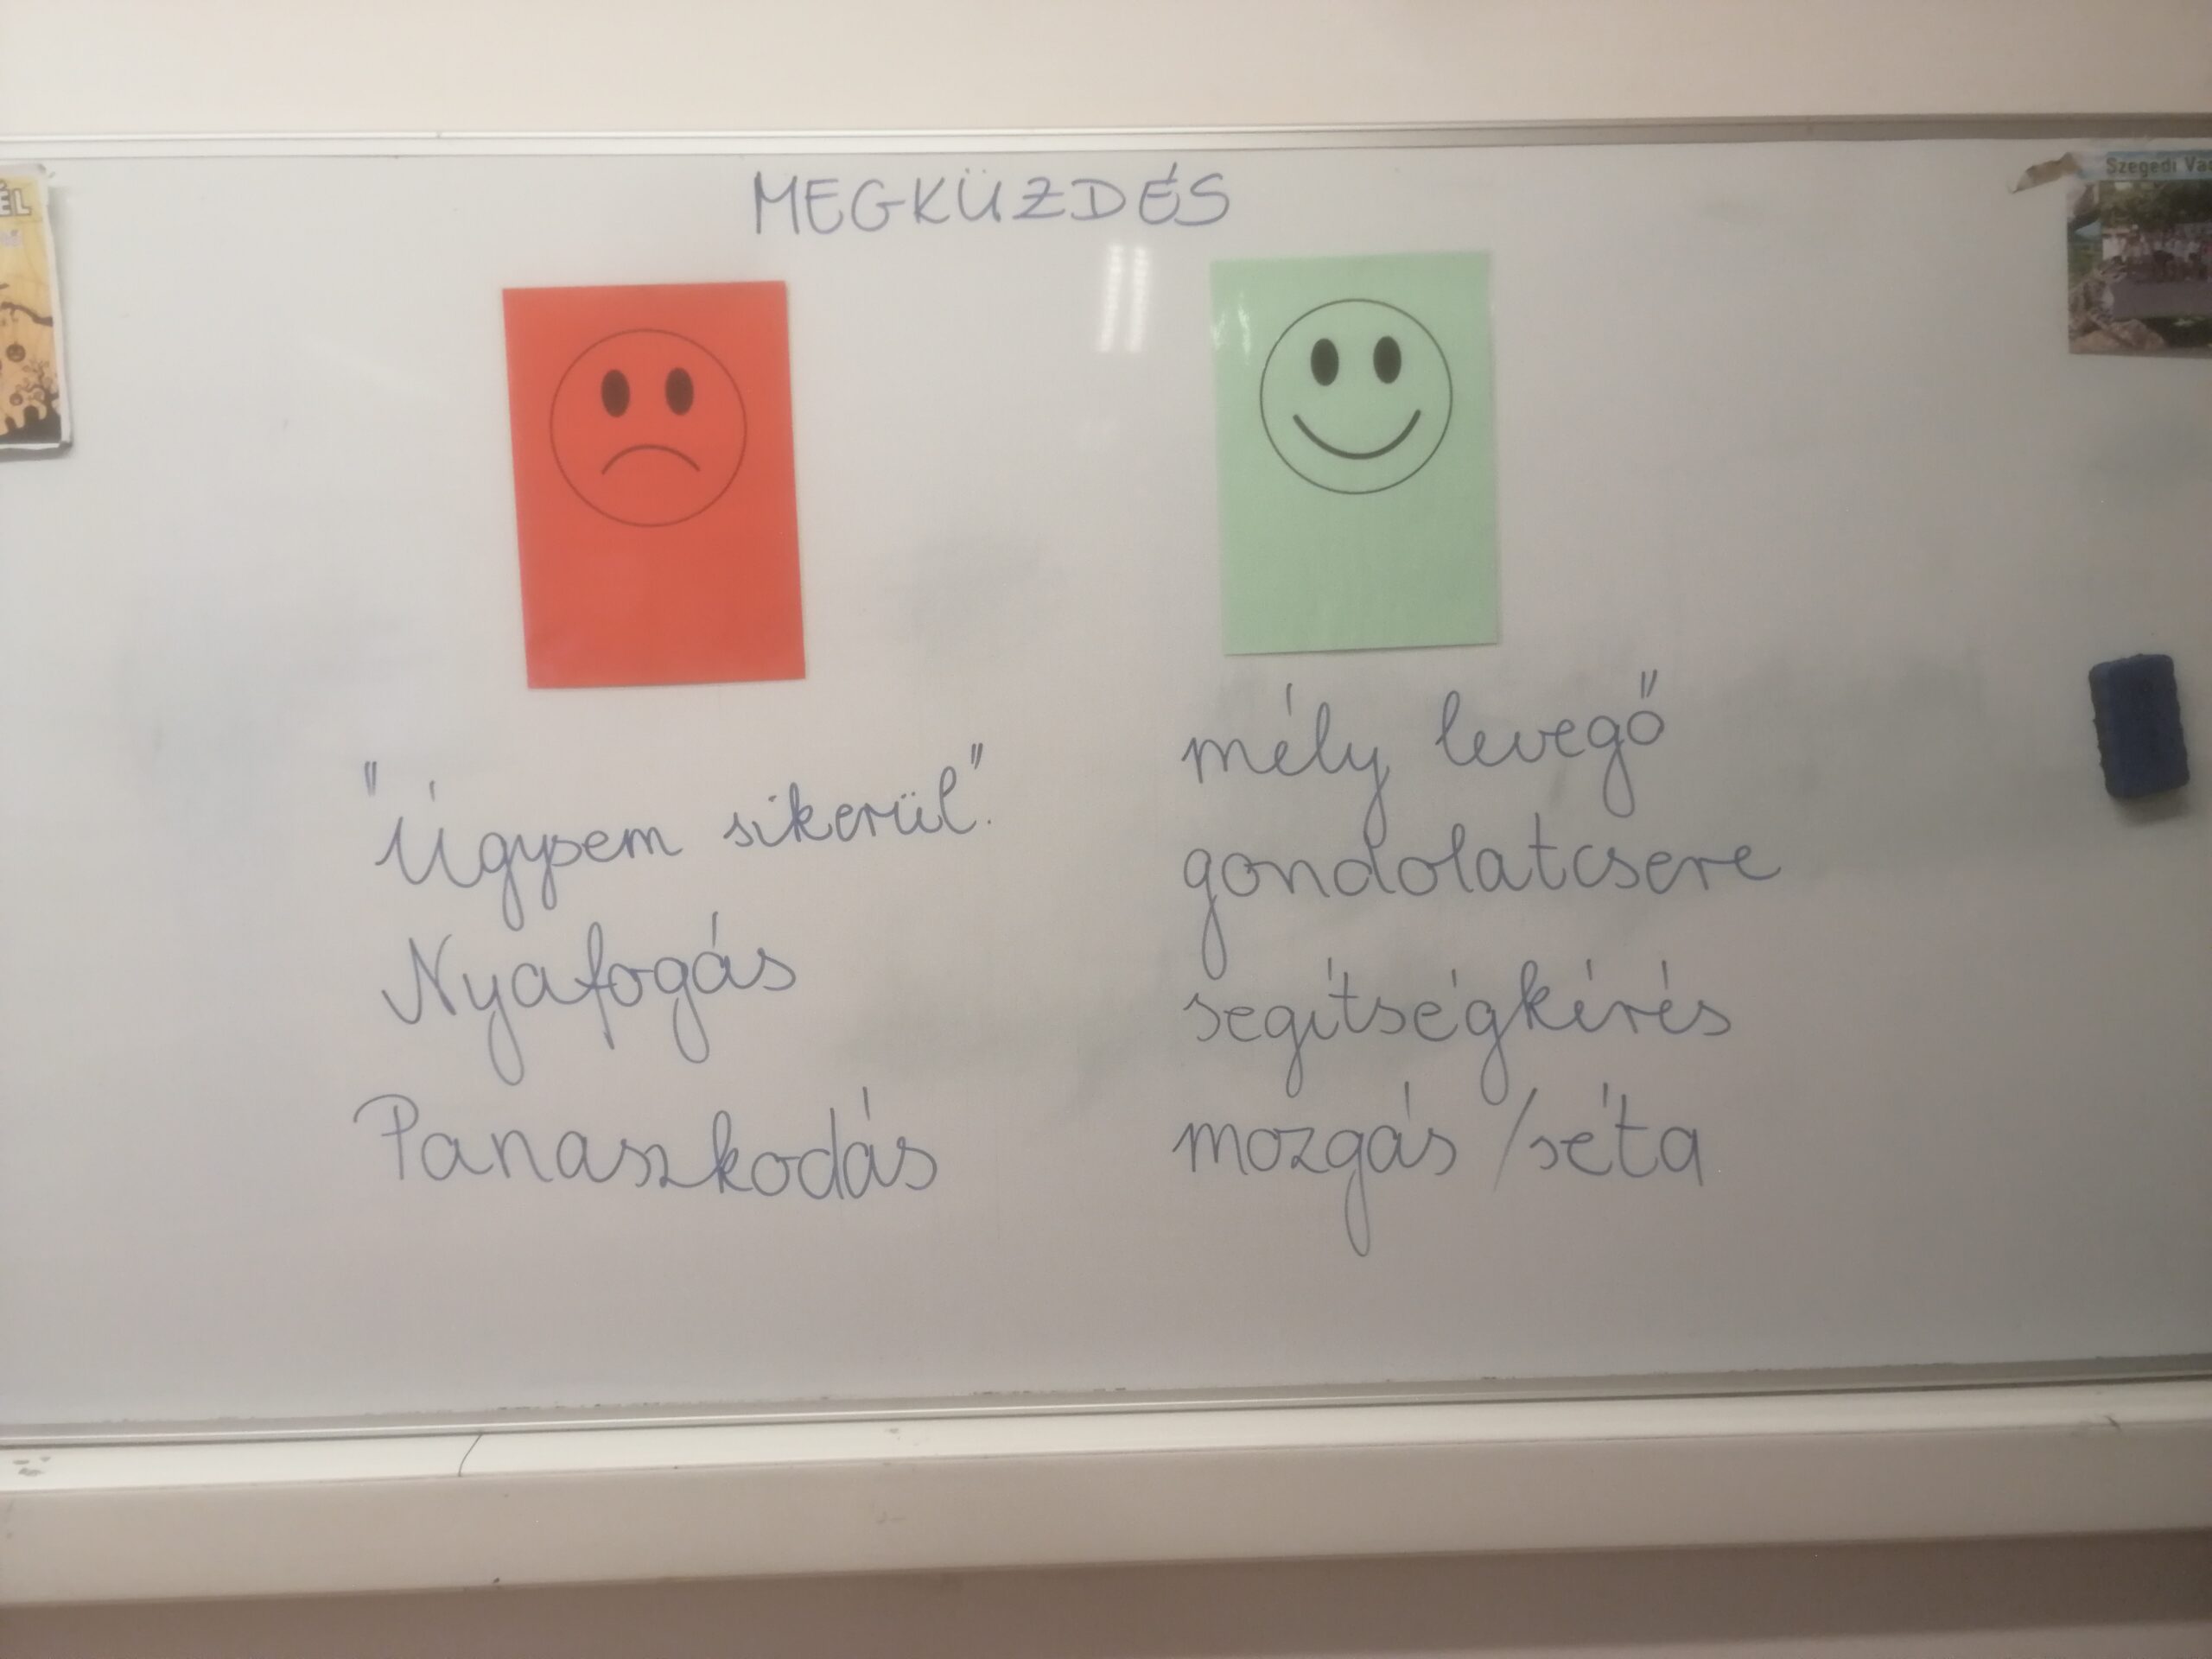 MEGKÜZDÉS
"Úgysem sikerül".
Nyafogás
Panaszkodás
mély levegő
gondolatcsere
segítségkérés
mozgás/séta
Szegedi